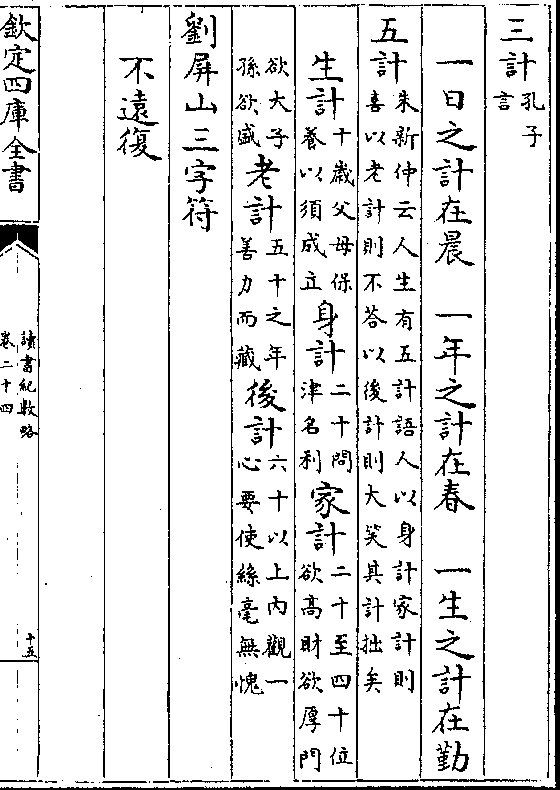 三計孔子言
一日之計在晨　一年之計在春　一生之計在勤
五計朱新仲云人生有五計語人以身計家計則喜以老計則不答以後計則大笑其計拙矣
生計十歲父母保養以須成立身計二十問津名利家計二十至四十位欲高財欲厚門
欲大子孫欲盛老計五十之年善力而藏後計六十以上內觀一心要使絲毫無愧
劉屏山三字符
不遠復
欽定四庫全書
讀書紀數略
卷二十四
十五